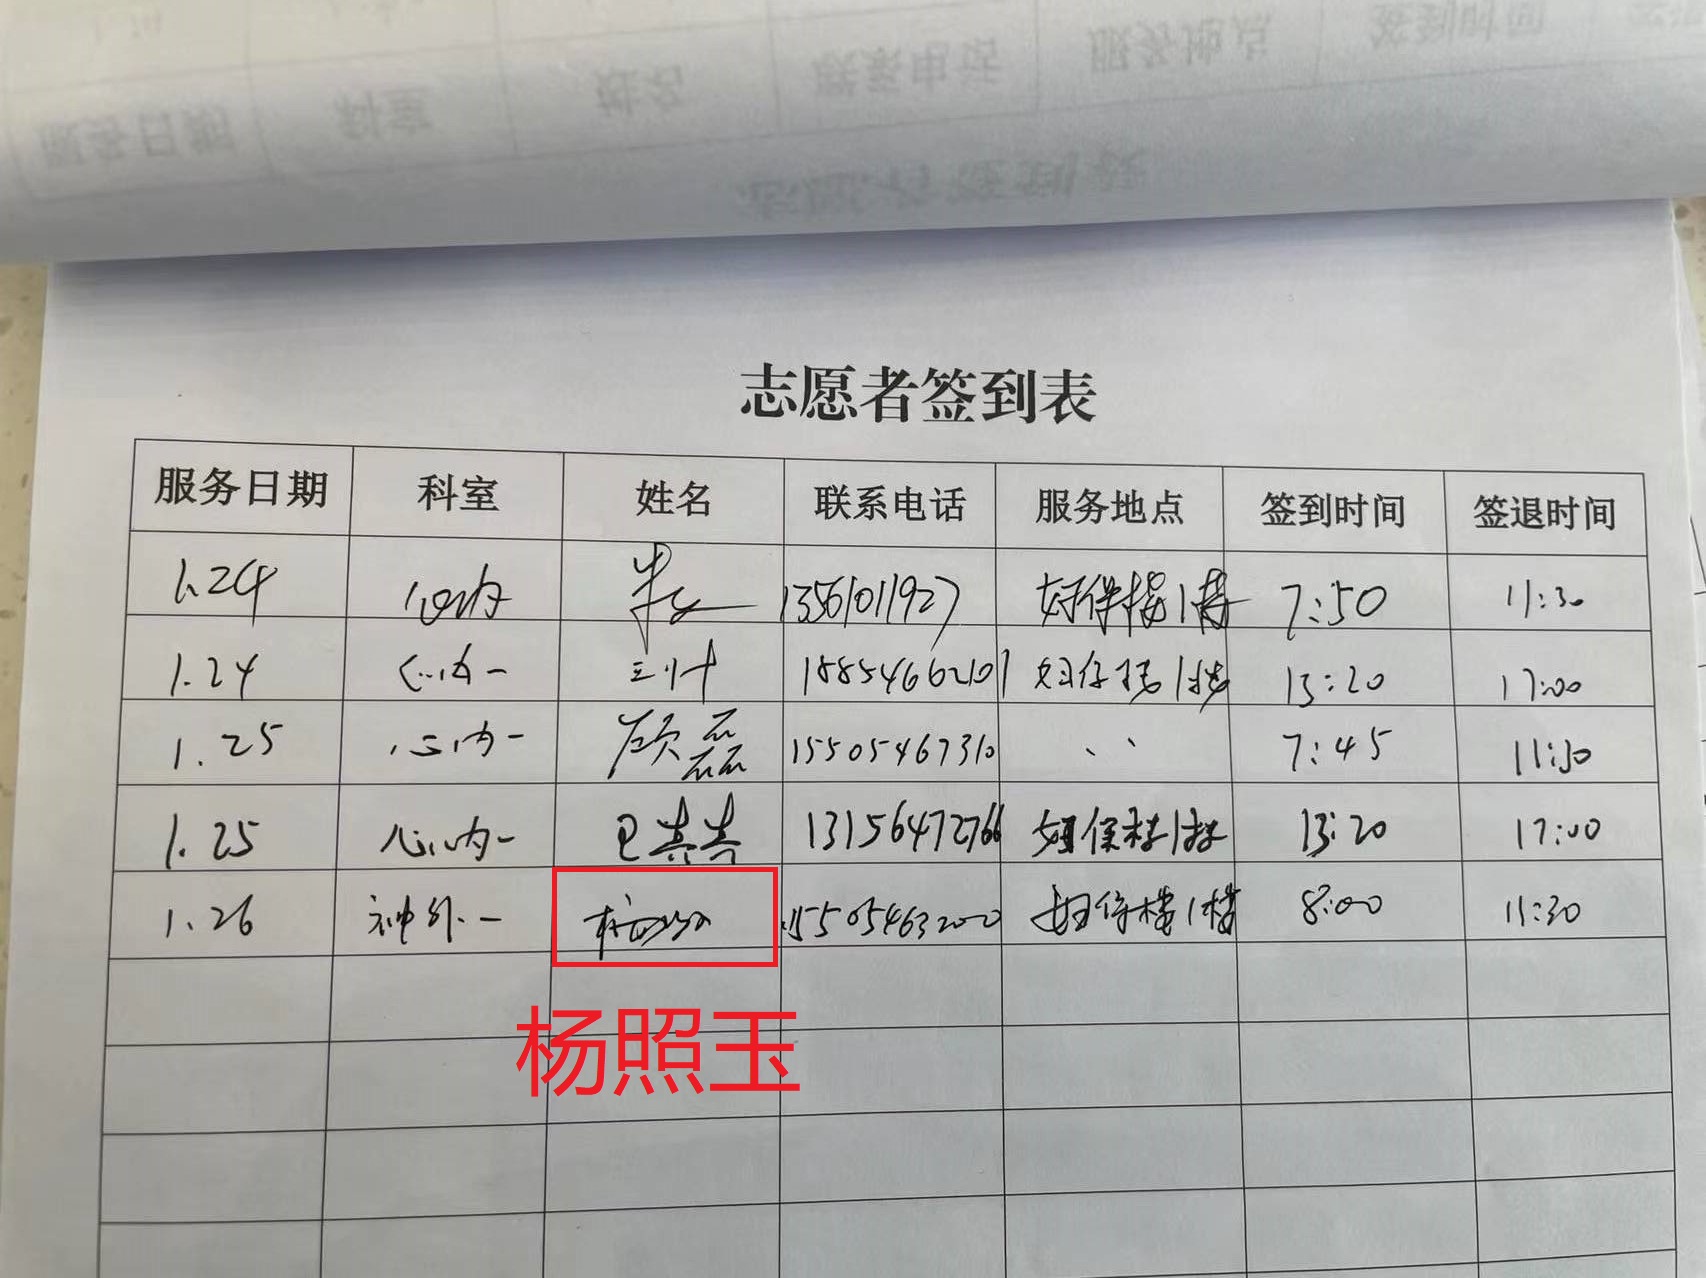 志愿者签到表
服务日期 科室 姓名 联系电话 服务地点 签到时间 签退时间
1.24 心内 13561011927 妇保楼1楼 7:50 11:30
1.24 心内一 18854662101 妇保楼1楼 13:20 17:00
1.25 心内一 顾磊 15505467310 〃 7:45 11:30
1.25 心内一 13156472766 妇保楼1楼 13:20 17:00
1.26 神外一 15505463200 妇保楼1楼 8:00 11:30
杨照玉